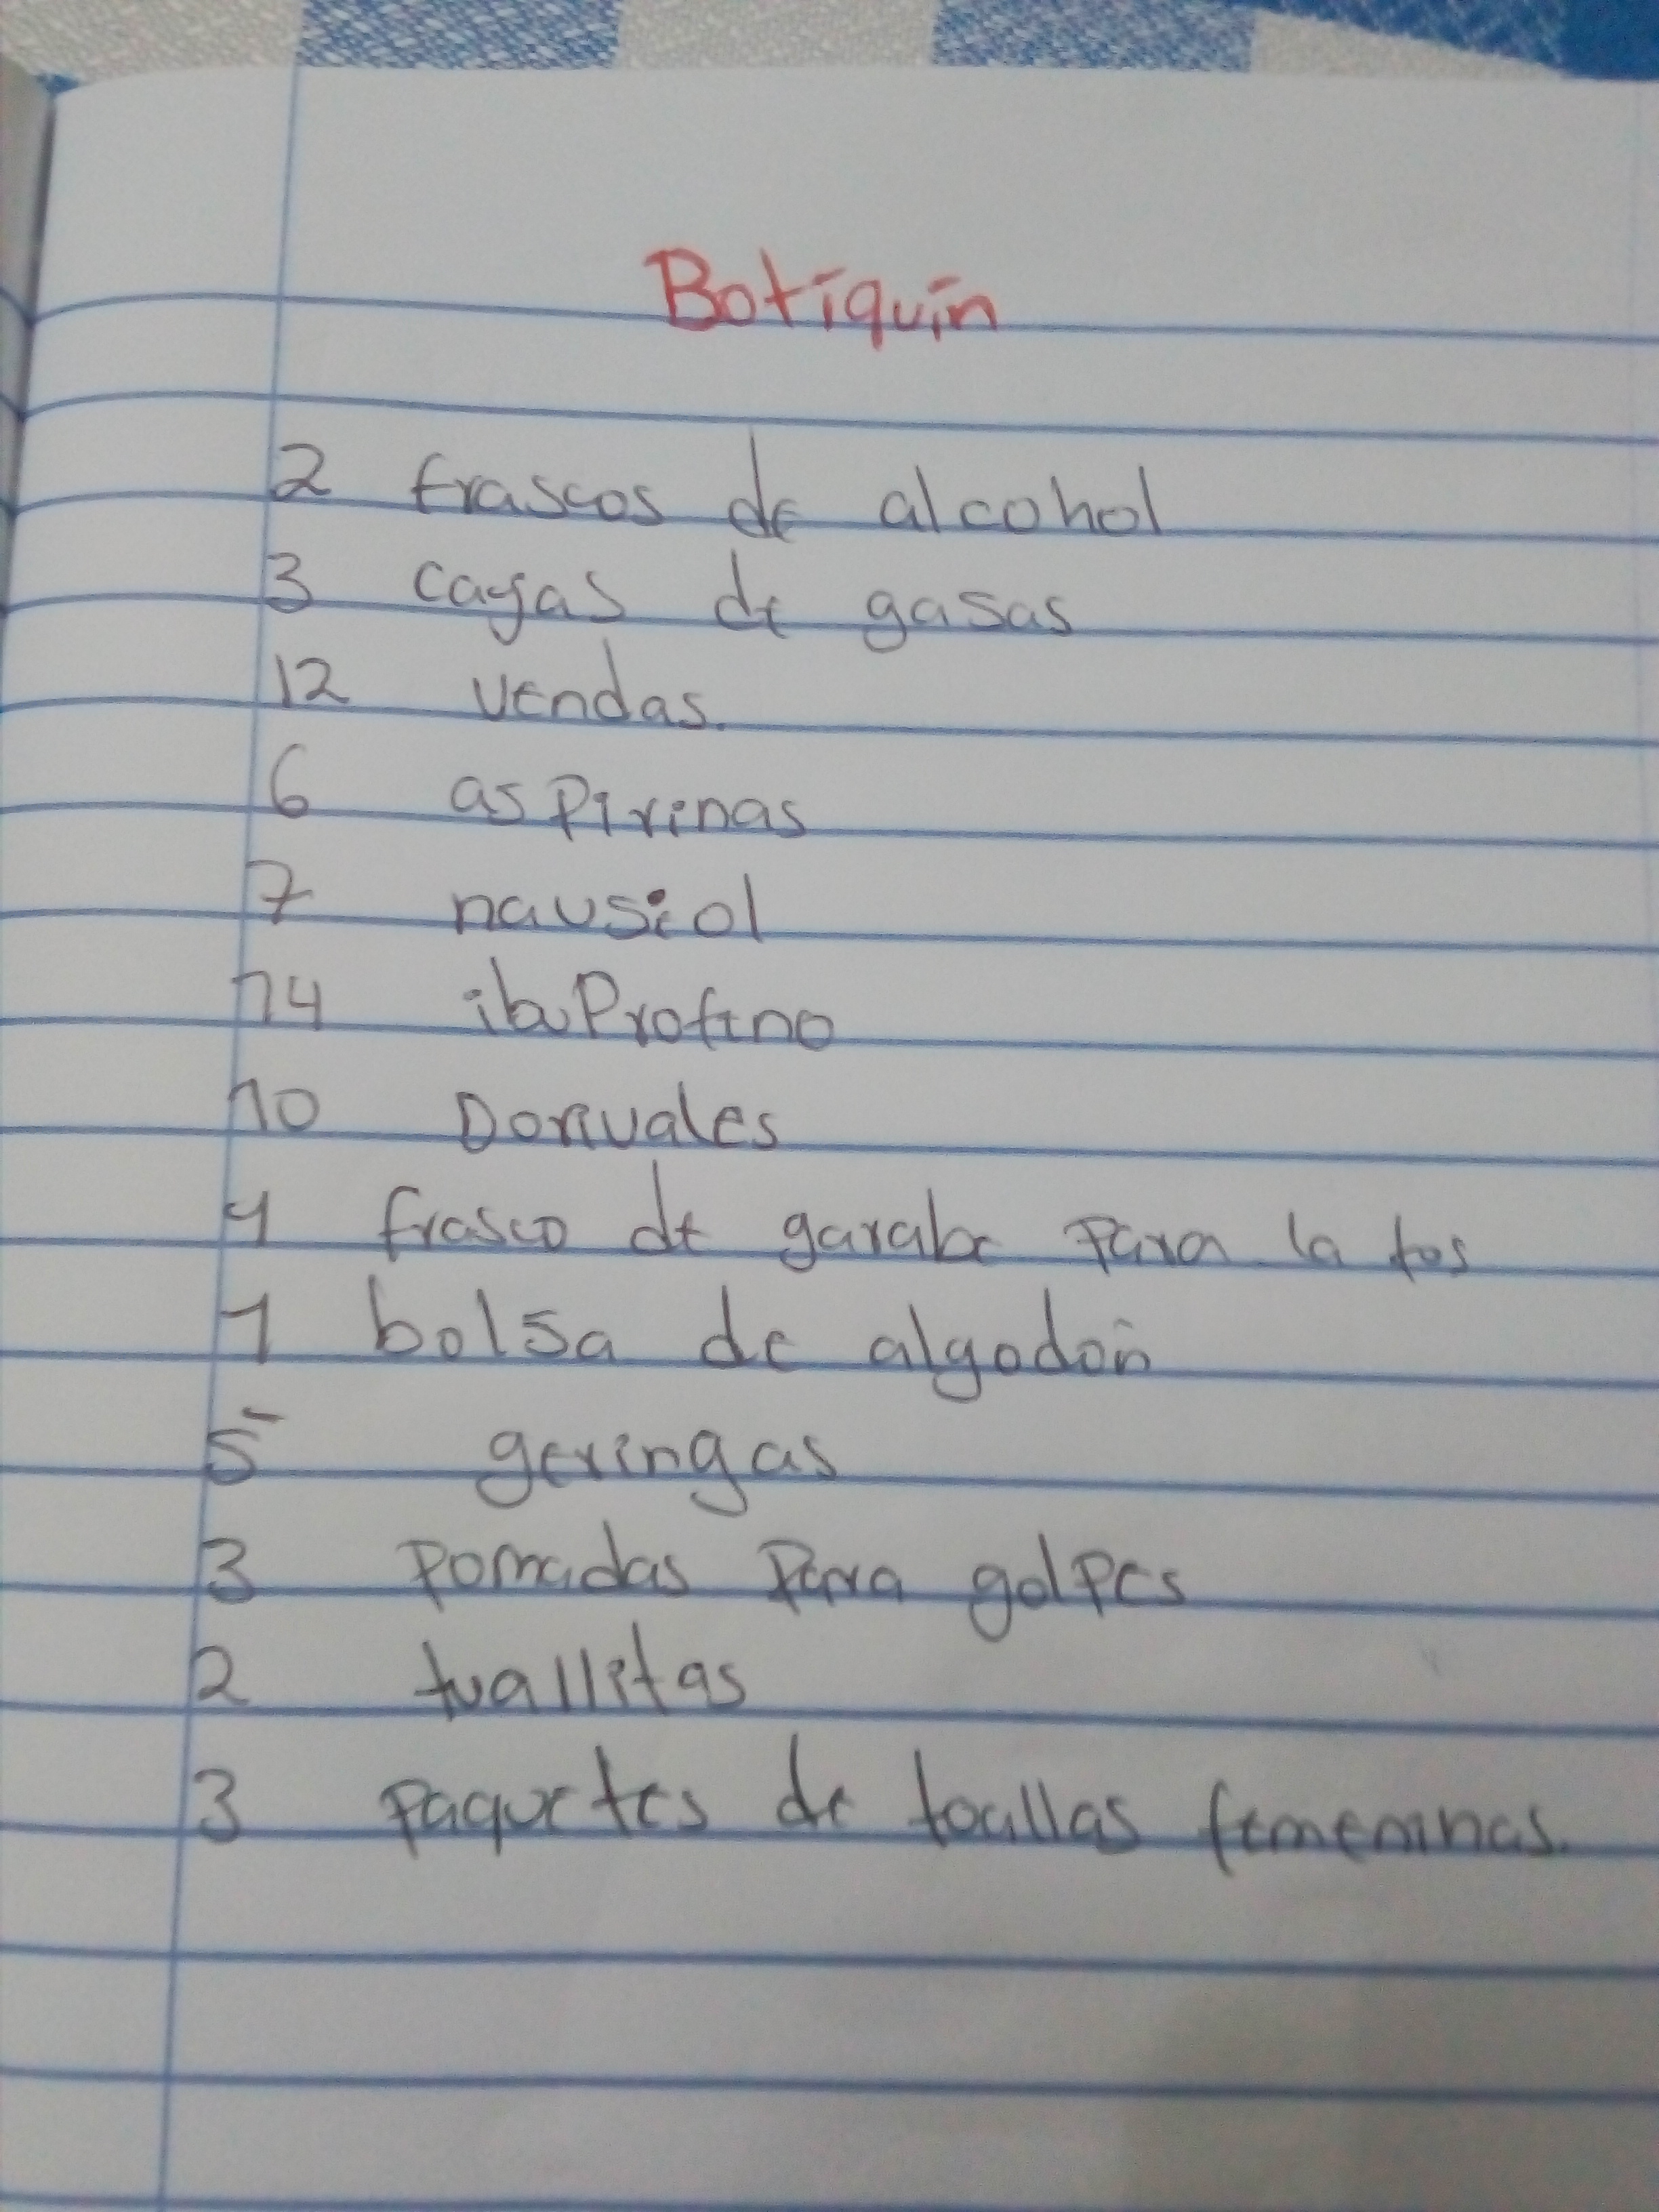 Botiquín
2 frascos de alcohol
3 cagas de gasas
12 vendas.
6 aspirinas
7 nausiol
14 ibuprofeno
10 Dorivales
1 frasco de garabe para la tos
1 bolsa de algodón
5 geringas
3 pomadas para golpes
2 tuallitas
3 paquetes de toallas femeninas.